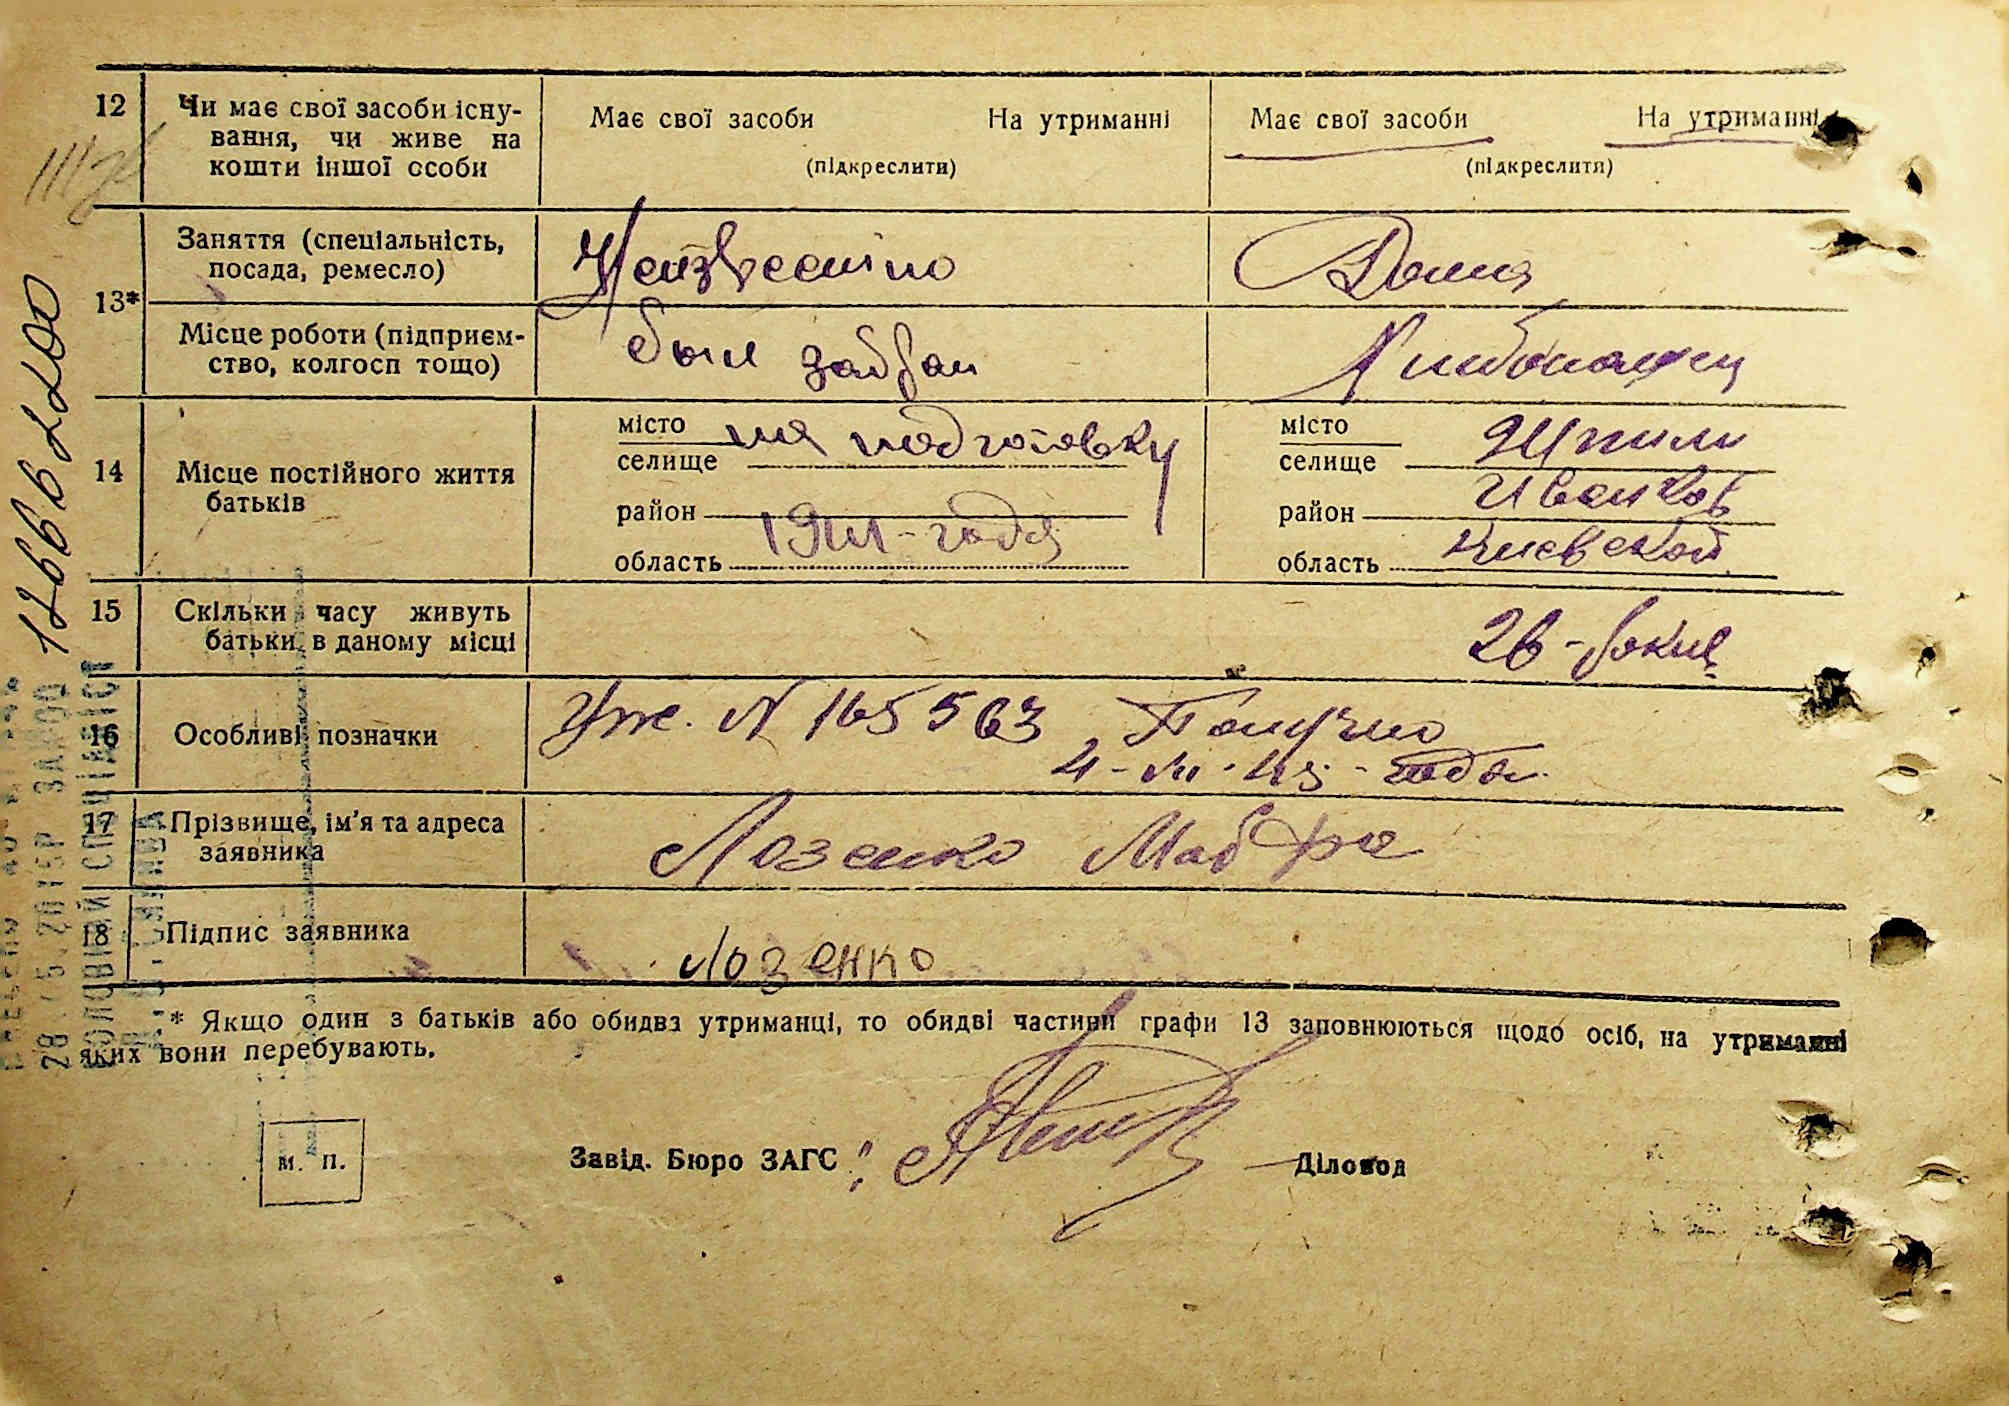 12 Чи має свої засоби існу-
вання, чи живе на
кошти іншої особи
Має свої засоби На утриманні
(підкреслити)
Має свої засоби На утриманні
(підкреслити)
13*
Заняття (спеціальність,
посада, ремесло)
Неизвестно
Дома
Місце роботи (підприєм-
ство, колгосп тощо)
был забран
14 Місце постійного життя
батьків
місто на подготовку
селище
район
область 1941-года
місто Шпили
селище
район Иванков
область Киевской
15 Скільки часу живуть
батьки в даному місці
26-
16 Особливі позначки
N 165563 Получно
17 Прізвище, ім'я та адреса
заявника
Лозенко Мавра
18 Підпис заявника
Лозенко
* Якщо один з батьків або обидва утриманці, то обидві частини графи 13 заповнюються щодо осіб, на утриманні
яких вони перебувають.
М. П.
Завід. Бюро ЗАГС
Діловод